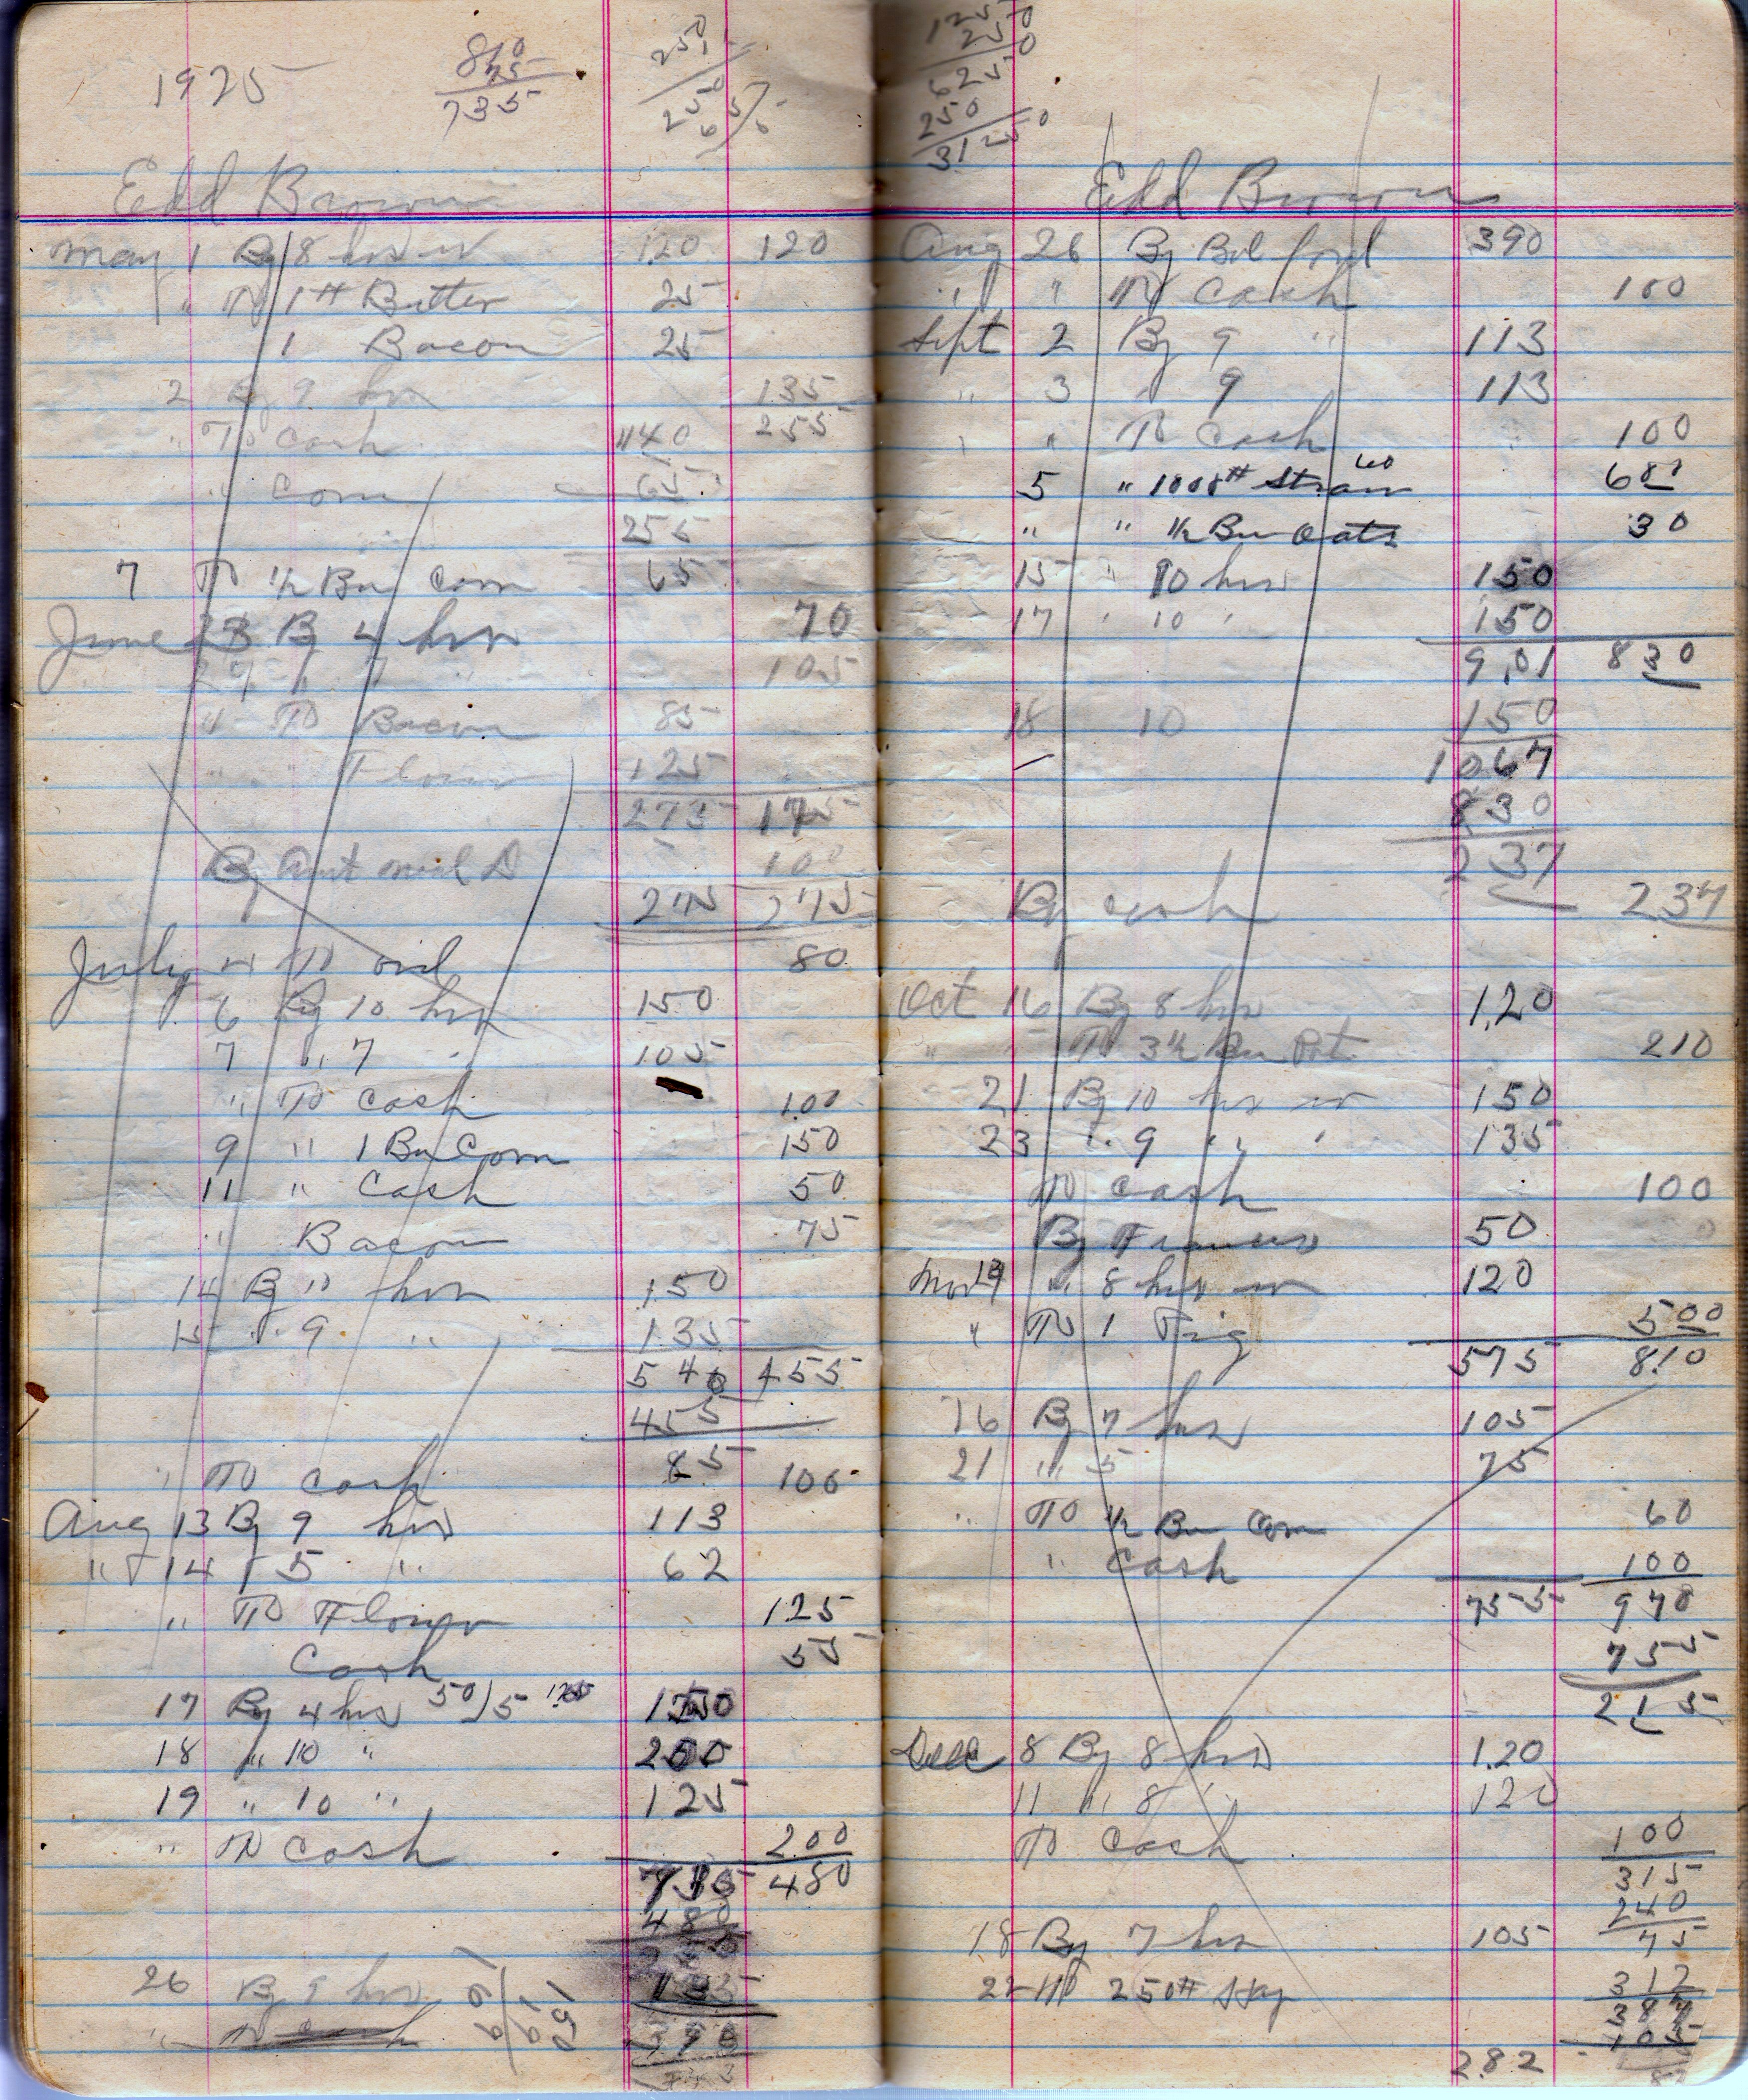 1925
810
75
735
250
Edd Brown
May 1 By 8 hrs w 120 120
" To 1# Butter 25
1 Bacon 25
2 By 9 hrs 135
" To Cash 140 255
" Corn 65
255
7 To ½ Bu Corn 65
June 23 By 4 hrs 70
27 " 7 " 105
" To Bacon 85
" " Flour 125
275 175
By Amt 100
275 275
July 4 To 80
6 By 10 hrs 150
7 " 7 " 105
" To Cash 100
9 " 1 Bu Corn 150
11 " Cash 50
" Bacon 75
14 By 10 hrs 150
15 " 9 " 135
540 455
455
85
" To Cash 100
Aug 13 By 9 hrs 113
" 14 " 5 " 62
" To Flour 125
Cash 55
17 By 4 hrs 50)5 150
18 " 10 " 200
19 " 10 " 125
" To Cash 200
735 480
480
26 By 9 hrs 135
" To Cash 390
1250
250
6250
250
31250
Edd Brown
Aug 26 By Bal ford 390
" " To Cash 100
Sept 2 By 9 " 113
" 3 " 9 113
" " To Cash 100
5 " 1008# Straw 60 600
" " ½ Bu Oats 30
15 " 10 hrs 150
17 " 10 " 150
9,01 830
18 10 150
1067
830
237
By Cash 237
Oct 16 By 8 hrs 1,20
" " To 3½ Bu Pot. 210
21 By 10 hrs w 150
23 " 9 " " 135
To Cash 100
By Francis 50
Nov 14 " 8 hrs w 120
" To 1 Pig 500
575 810
16 By 7 hrs 105
21 " 5 75
" To ½ Bu Corn 60
" Cash 100
755 970
755
215
Dec 8 By 8 hrs 1.20
11 " 8 " 120
To Cash 100
315
240
75
18 By 7 hrs 105
22 To 250# Hay 312
387
105
282